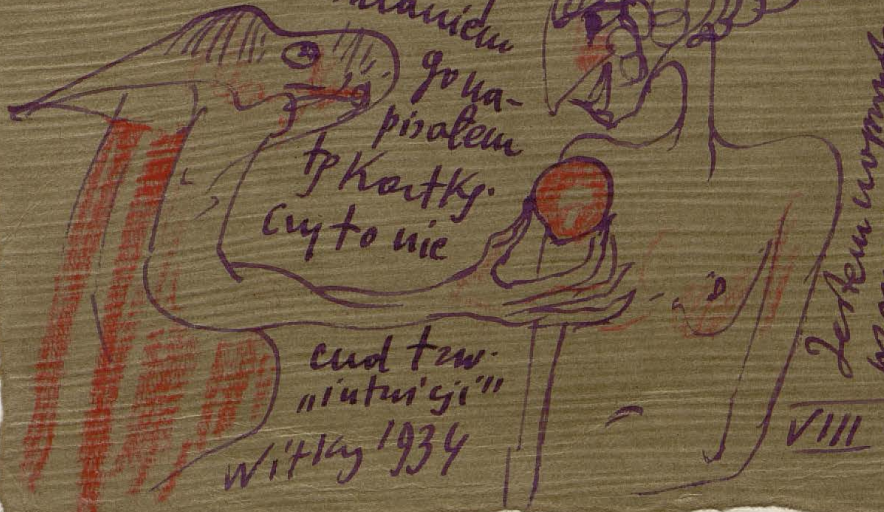 go na-
pisałem
tę Kartkę.
Czy to nie
cud tzw.
"intuicji"
Witkacy 1934
Jestem
VIII